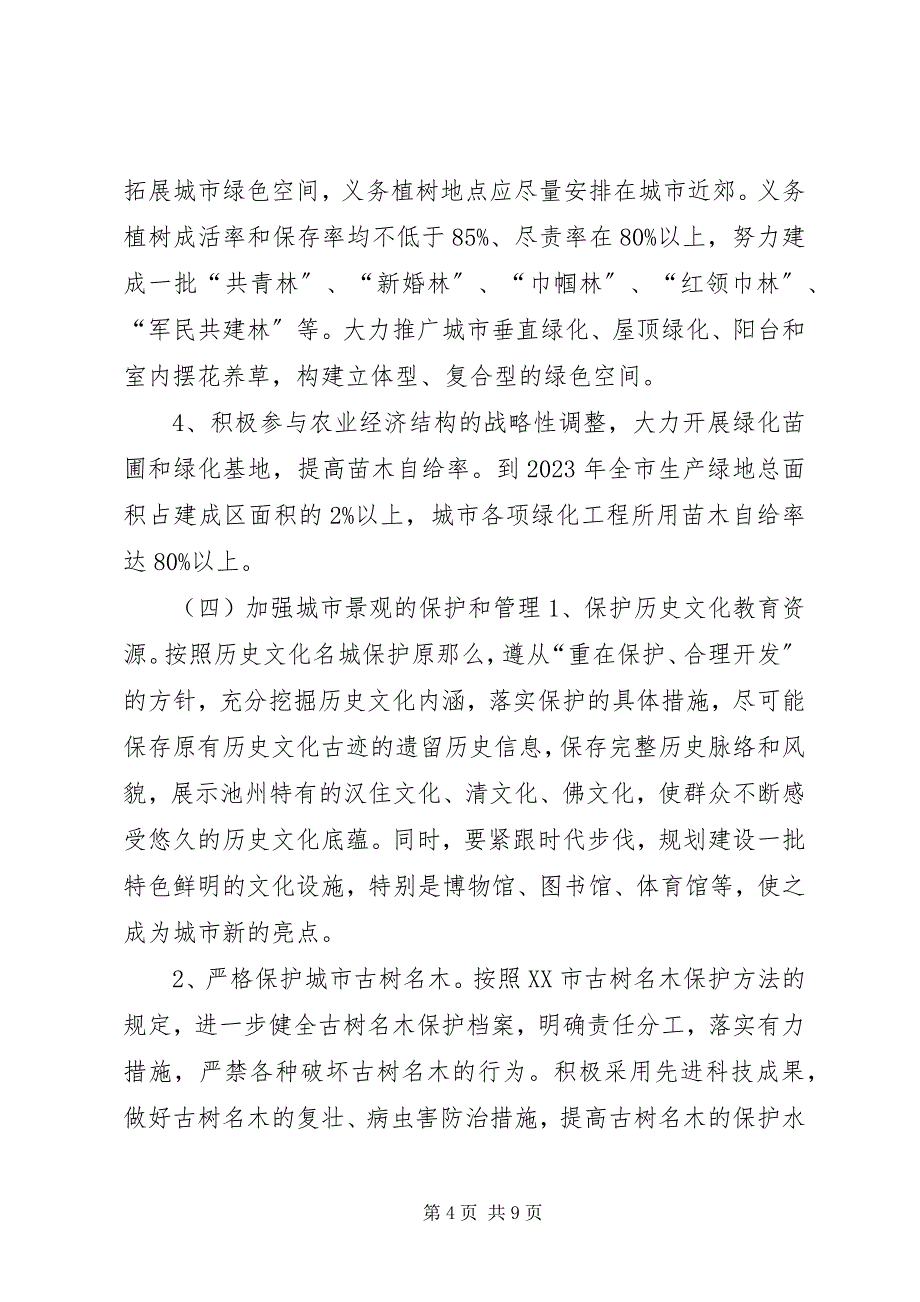 拓展城市绿色空间，义务植树地点应尽量安排在城市近郊。义务
植树成活率和保存率均不低于 85%、尽责率在 80%以上，努力建
成一批“共青林〞、“新婚林〞、“巾帼林〞、“红领巾林〞、
“军民共建林〞等。大力推广城市垂直绿化、屋顶绿化、阳台和
室内摆花养草，构建立体型、复合型的绿色空间。
4、积极参与农业经济结构的战略性调整，大力开展绿化苗
圃和绿化基地，提高苗木自给率。到 2023 年全市生产绿地总面
积占建成区面积的 2%以上，城市各项绿化工程所用苗木自给率
达 80%以上。
（四）加强城市景观的保护和管理 1、保护历史文化教育资
源。按照历史文化名城保护原那么，遵从“重在保护、合理开发〞
的方针，充分挖掘历史文化内涵，落实保护的具体措施，尽可能
保存原有历史文化古迹的遗留历史信息，保存完整历史脉络和风
貌，展示池州特有的汉住文化、清文化、佛文化，使群众不断感
受悠久的历史文化底蕴。同时，要紧跟时代步伐，规划建设一批
特色鲜明的文化设施，特别是博物馆、图书馆、体育馆等，使之
成为城市新的亮点。
2、严格保护城市古树名木。按照 XX 市古树名木保护方法的
规定，进一步健全古树名木保护档案，明确责任分工，落实有力
措施，严禁各种破坏古树名木的行为。积极采用先进科技成果，
做好古树名木的复壮、病虫害防治措施，提高古树名木的保护水
第 4 页 共 9 页